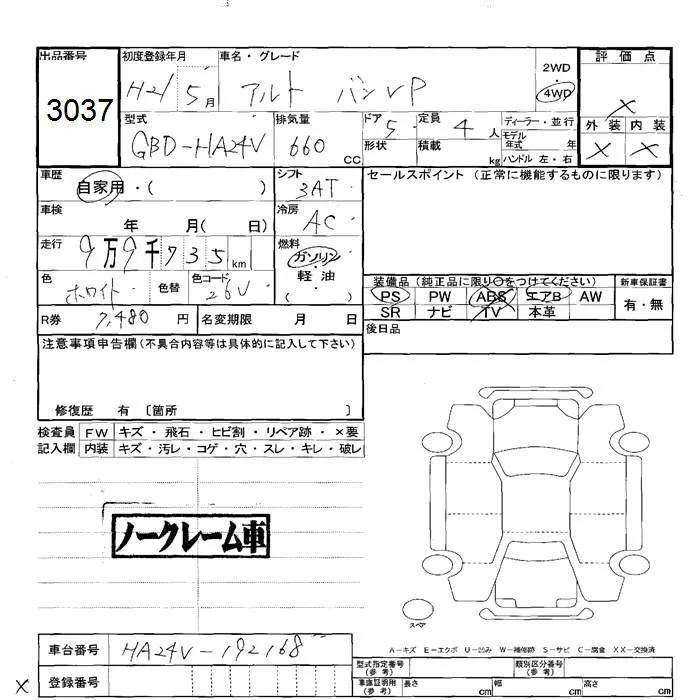 出品番号 初度登録年月 車名・グレード 評価点
3037 H21 5月 アルト バンVP 2WD 4WD
×
型式 排気量 ドア 定員 ディーラー・並行 外装 内装
GBD-HA24V 660 CC 5 4人 モデル年式 年
形状 積載 kg ハンドル 左・右 × ×
車歴 自家用・( ) シフト 3AT セールスポイント(正常に機能するものに限ります)
車検 年 月( 日) 冷房 AC
走行 9万9千735km 燃料 ガソリン
軽油
( )
色 ホワイト 色替 色コード 26V 装備品(純正品に限り○をつけてください) 新車保証書
PS PW ABS エアB AW 有・無
SR ナビ TV 本革
R券 7,480円 名変期限 月 日 後日品
注意事項申告欄(不具合内容等は具体的に記入して下さい)
修復歴 有〔箇所 〕
検査員 FW キズ・飛石・ヒビ割・リペア跡・×要
記入欄 内装 キズ・汚レ・コゲ・穴・スレ・キレ・破レ
ノークレーム車
スペア
A-キズ E-エクボ U-凹み W-補修跡 S-サビ C-腐食 XX-交換済
車台番号 HA24V-192168 型式指定番号(参考) 類別区分番号(参考)
× 登録番号 車庫証明用(参考) 長さ cm 幅 cm 高さ cm